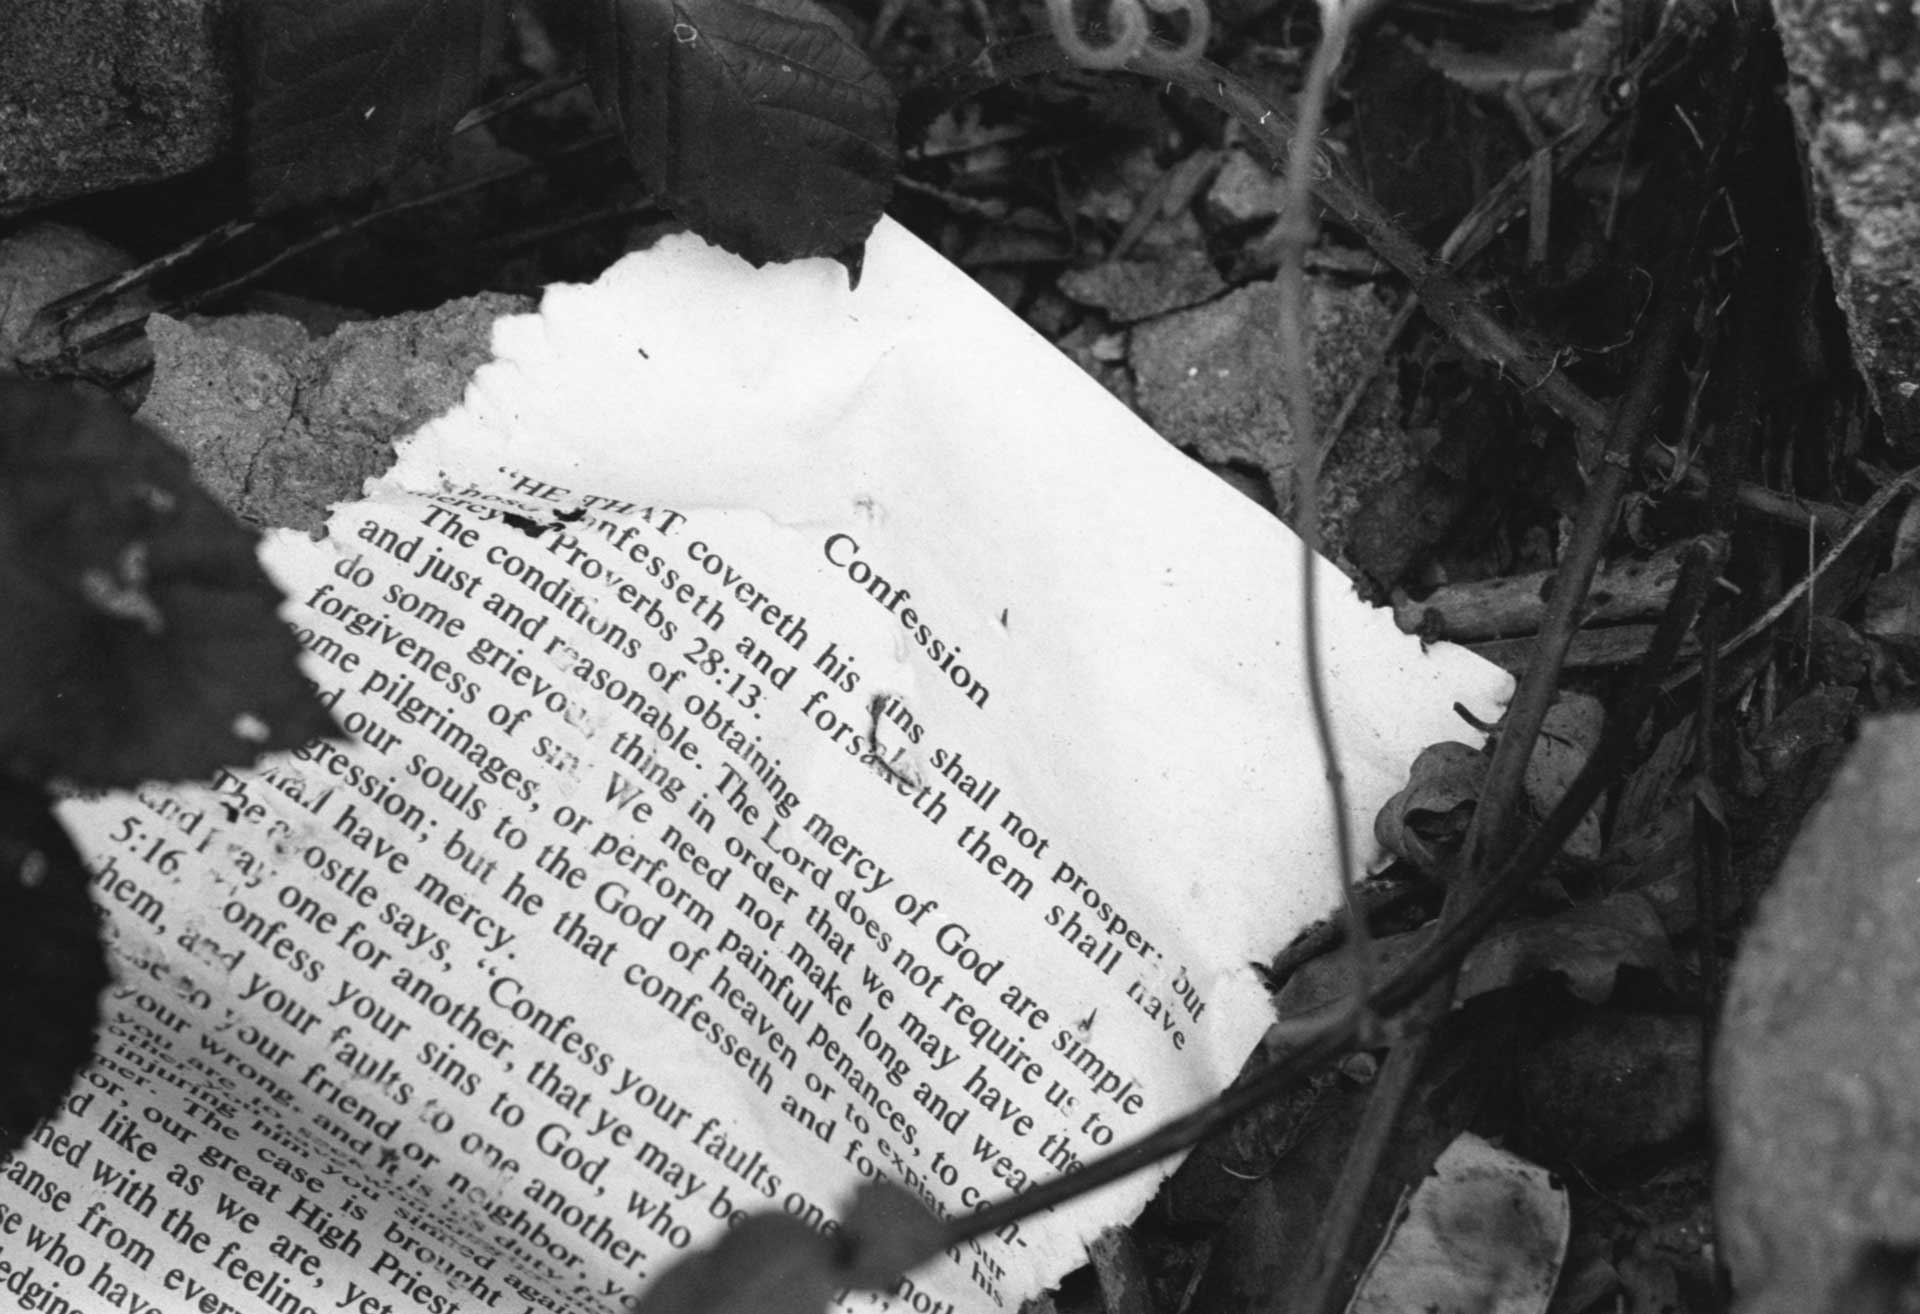 Confession
"HE THAT covereth his sins shall not prosper: but
whoso confesseth and forsaketh them shall have
mercy." Proverbs 28:13.
The conditions of obtaining mercy of God are simple
and just and reasonable. The Lord does not require us to
do some grievous thing in order that we may have the
forgiveness of sin. We need not make long and wear
some pilgrimages, or perform painful penances, to com-
our souls to the God of heaven or to expiate our
gression; but he that confesseth and for his
shall have mercy.
The apostle says, "Confess your faults one
and pray one for another, that ye may be
5:16. Confess your sins to God, who
them, and your faults to one another.
your friend or neighbor, yo
your wrong, and it is his duty
you are to seek
other,
injuring him you sinned again
mer. The case is brought
tor, our great High Priest
d like as we are, yet
hed with the feeling
eanse from ever
se who have
edgin